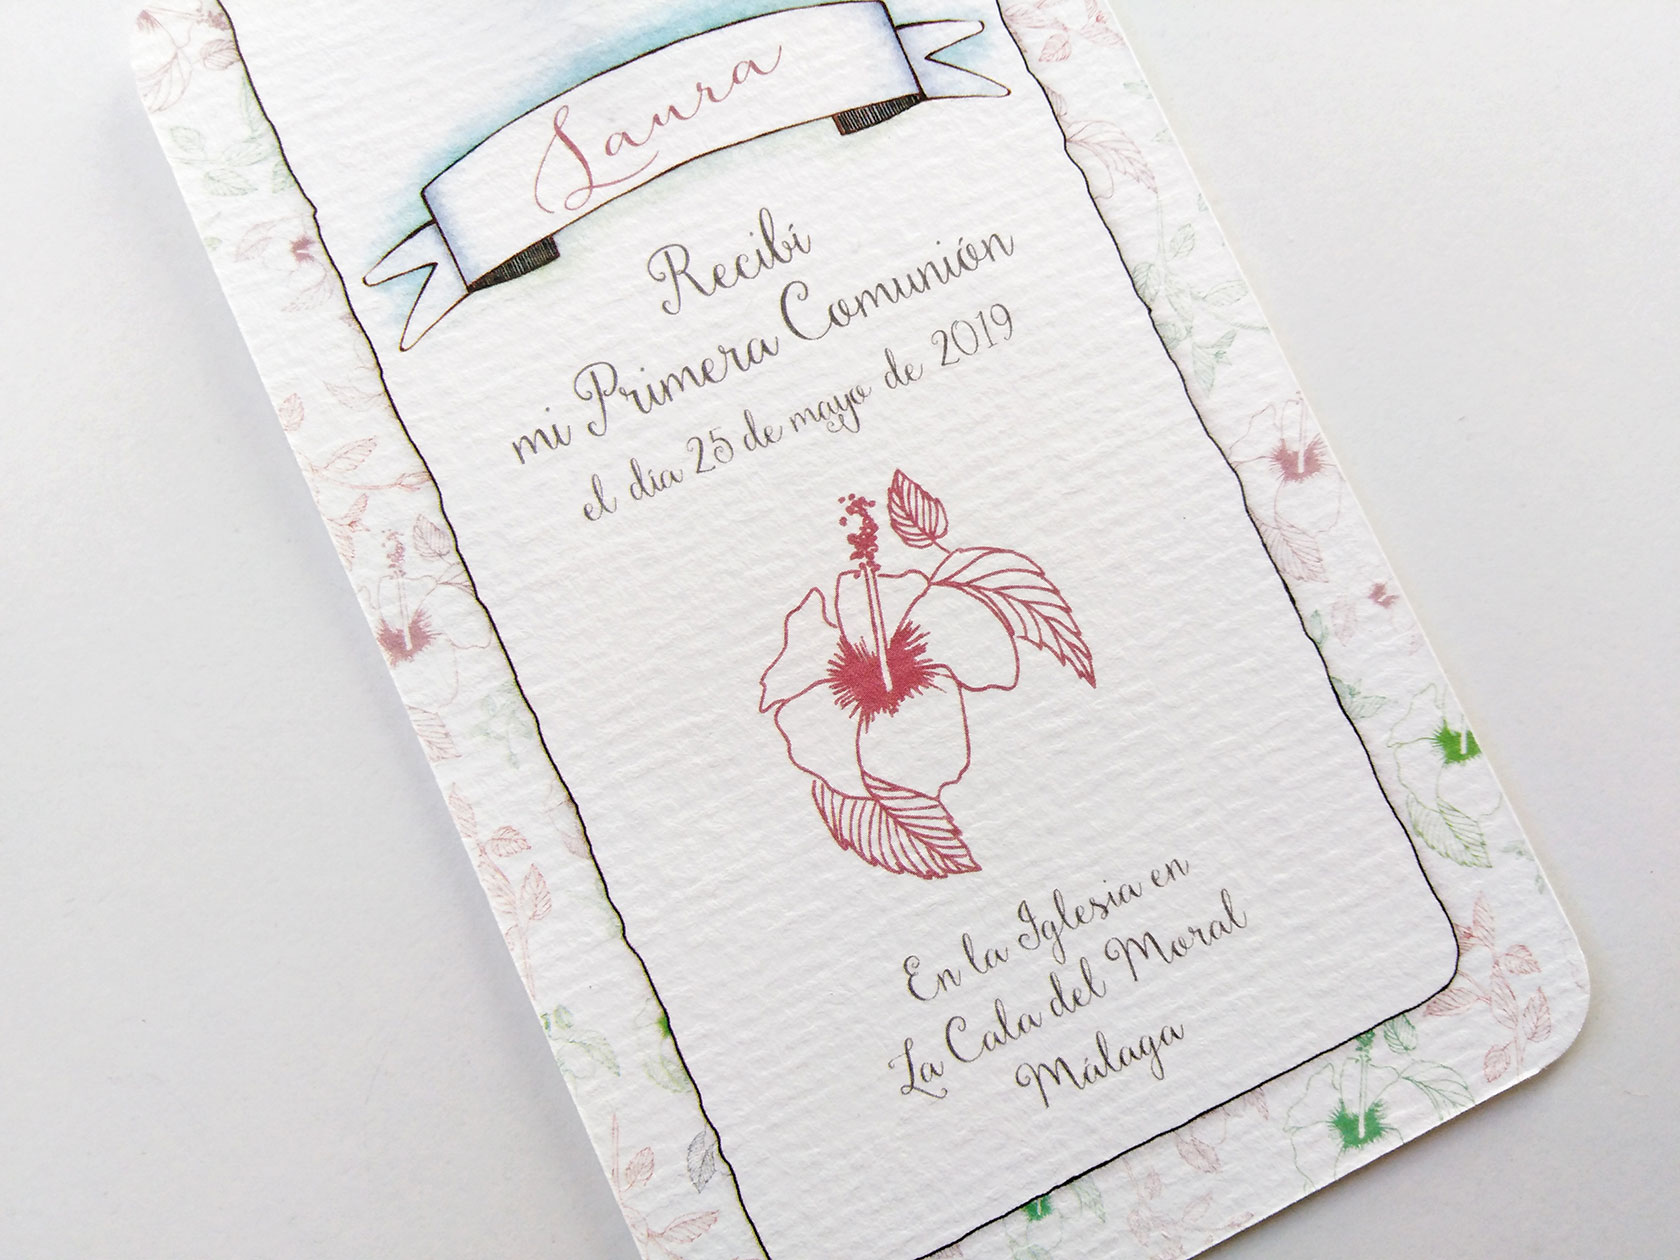 Laura
Recibí
mi Primera Comunión
el día 25 de mayo de 2019
En la Iglesia en
La Cala del Moral
Málaga